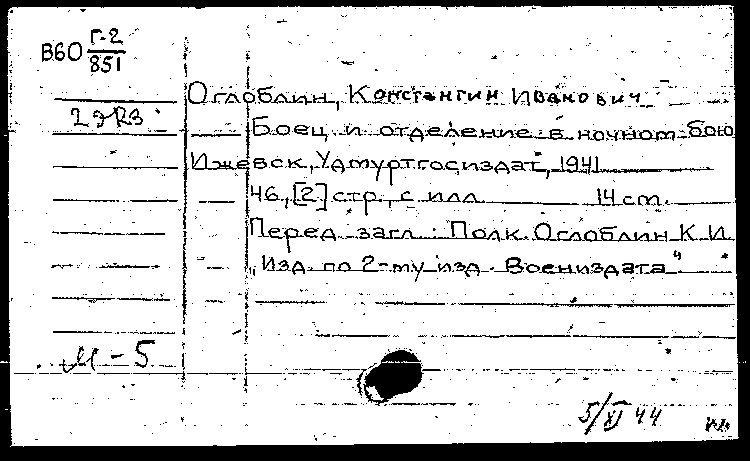 В60 Г-2
851
Оглоблин, Константин Иванович
2 экз.
Боец и отделение в ночном бою
Ижевск, Удмуртгосиздат, 1941
46, [2] стр., с илл. 14 cm.
Перед загл.: Полк. Оглоблин К. И.
„Изд. по 2-му изд. Воениздата"
М-5
5/XI 44